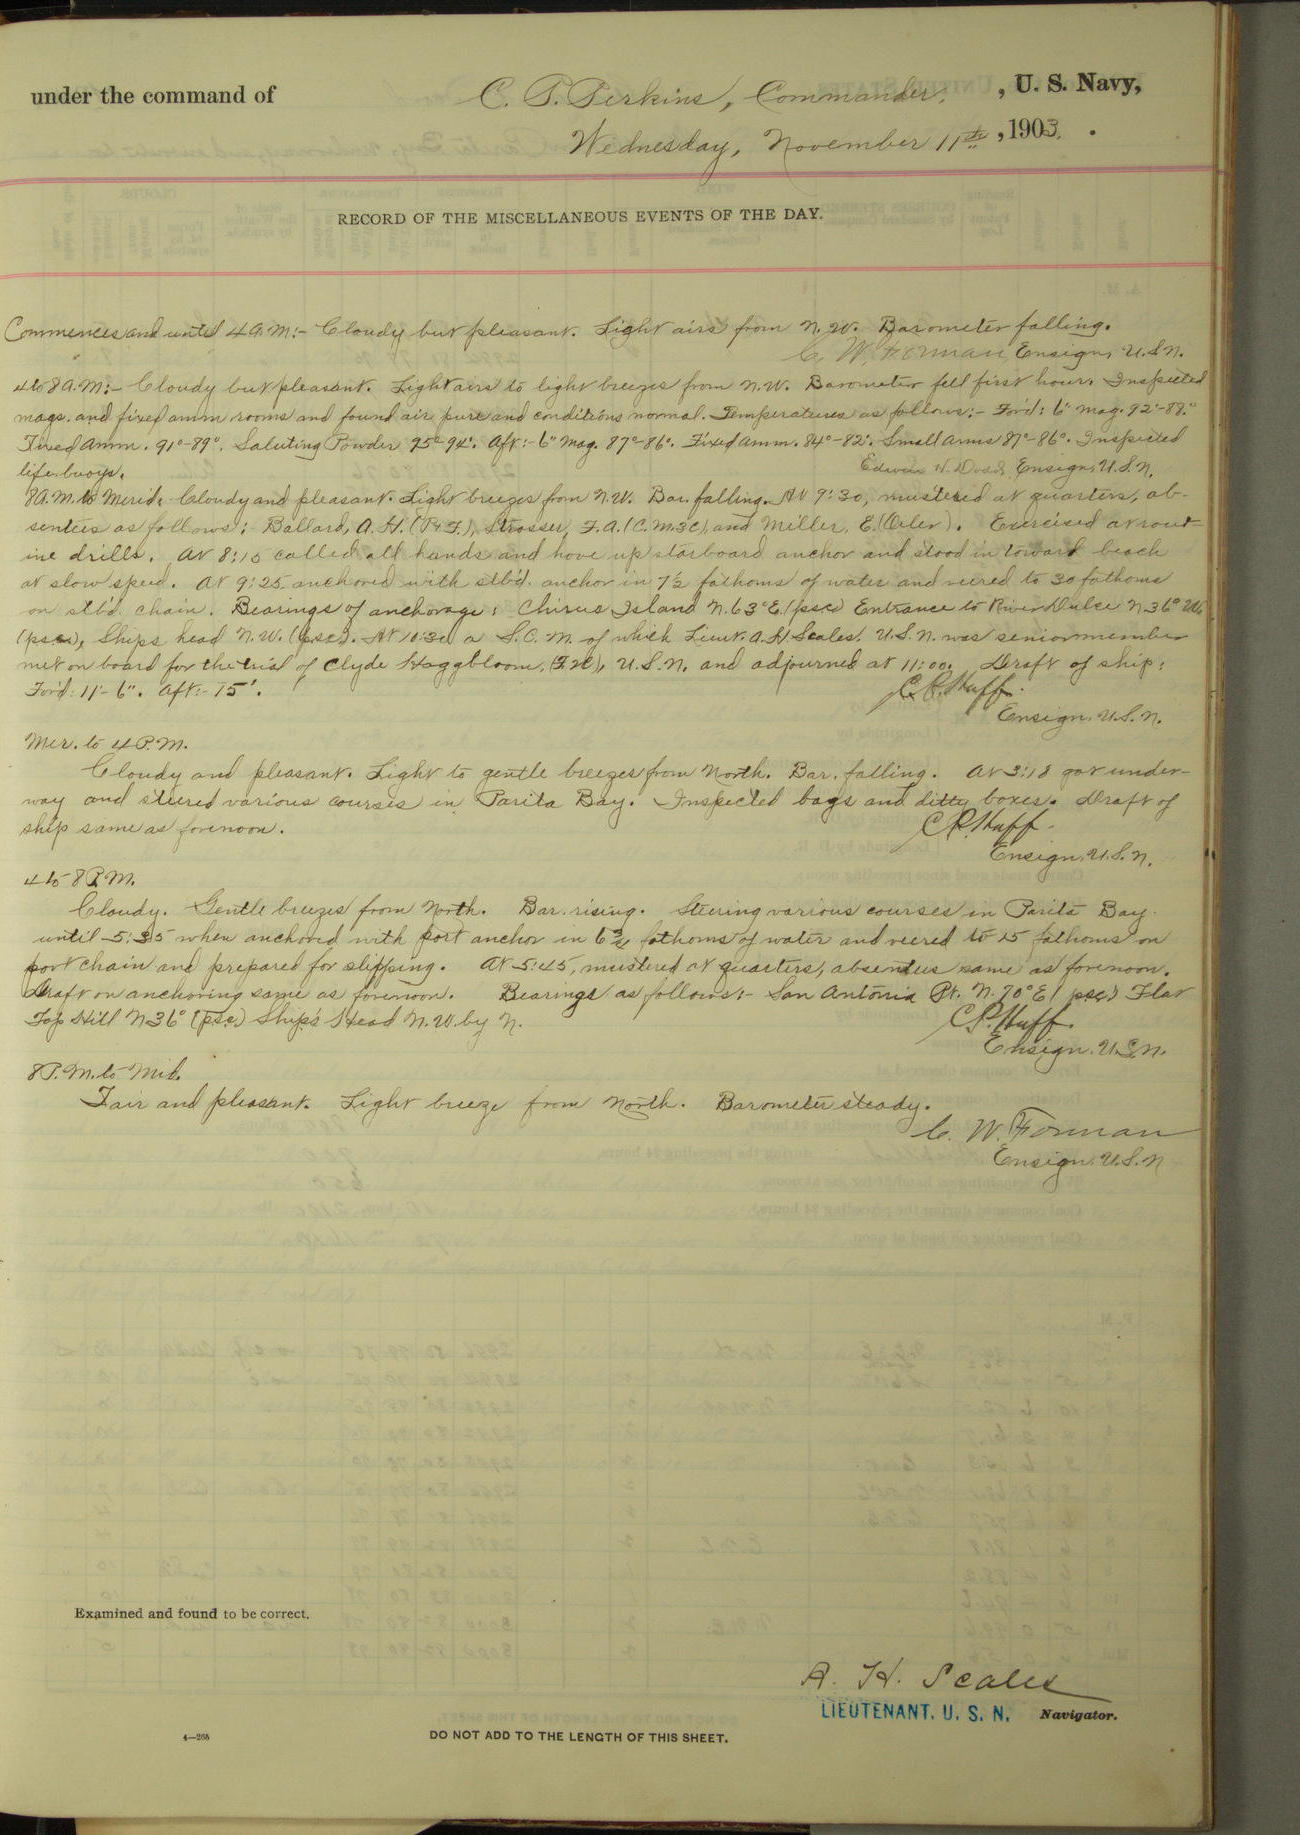 under the command of C. P. Perkins, Commander, , U. S. Navy,
Wednesday, November 11th , 1903.
RECORD OF THE MISCELLANEOUS EVENTS OF THE DAY.
Commences and until 4 A.M:- Cloudy but pleasant. Light airs from N.W. Barometer falling.
C. W. Forman, Ensign, U.S.N.
4 to 8 A.M:- Cloudy but pleasant. Light airs to light breezes from N.W. Barometer fell first hour. Inspected
mags. and fixed amm rooms and found air pure and conditions normal. Temperatures as follows:- For'd: 6" mag. 92°-88°.
Fixed Amm. 91°-89°. Saluting Powder 95°-94°. Aft:- 6" Mag. 87°-86°. Fixed Amm. 84°-82°. Small Arms 87°-86°. Inspected
life buoys. Edwin H. Dodd, Ensign, U.S.N.
8 A.M. to Merid: Cloudy and pleasant. Light breezes from N.W. Bar. falling. At 9:30, mustered at quarters, ab-
sentees as follows: Ballard, A.H. (P.F.), Strosser, F.A. (C.M.3C), and Miller, E. (Oiler). Exercised at rout-
ine drills. At 8:15 called all hands and hove up starboard anchor and stood in toward beach
at slow speed. At 9:25 anchored with stb'd. anchor in 7½ fathoms of water and veered to 30 fathoms
on stb'd. chain. Bearings of anchorage: Chirus Island N.63°E. (psc) Entrance to River Dulce N 36° W.
(psc), Ships head N.W. (psc). At 10:30 a S.C.M. of which Lieut. A.H. Scales, U.S.N. was senior member
met on board for the trial of Clyde Haggbloom, (F.2C), U.S.N. and adjourned at 11:00. Draft of ship:
For'd: 11'-6". Aft:- 15'. C. P. Huff.
Ensign, U.S.N.
Mer. to 4 P.M.
Cloudy and pleasant. Light to gentle breezes from North. Bar. falling. At 3:18 got under-
way and steered various courses in Parita Bay. Inspected bags and ditty boxes. Draft of
ship same as forenoon. C. P. Huff.
Ensign, U.S.N.
4 to 8 P.M.
Cloudy. Gentle breezes from North. Bar. rising. Steering various courses in Parita Bay
until 5:35 when anchored with port anchor in 6¾ fathoms of water and veered to 15 fathoms on
port chain and prepared for slipping. At 5:45, mustered at quarters, absentees same as forenoon.
Draft on anchoring same as forenoon. Bearings as follows:- San Antonia Pt. N. 70° E (psc) Flat
Top Hill N 36° (psc) Ship's Head N.W. by N. C. P. Huff.
Ensign, U.S.N.
8 P.M. to Mid.
Fair and pleasant. Light breeze from North. Barometer steady.
C. W. Forman
Ensign, U.S.N.
Examined and found to be correct.
A. H. Scales
LIEUTENANT. U. S. N. Navigator.
4—268 DO NOT ADD TO THE LENGTH OF THIS SHEET.